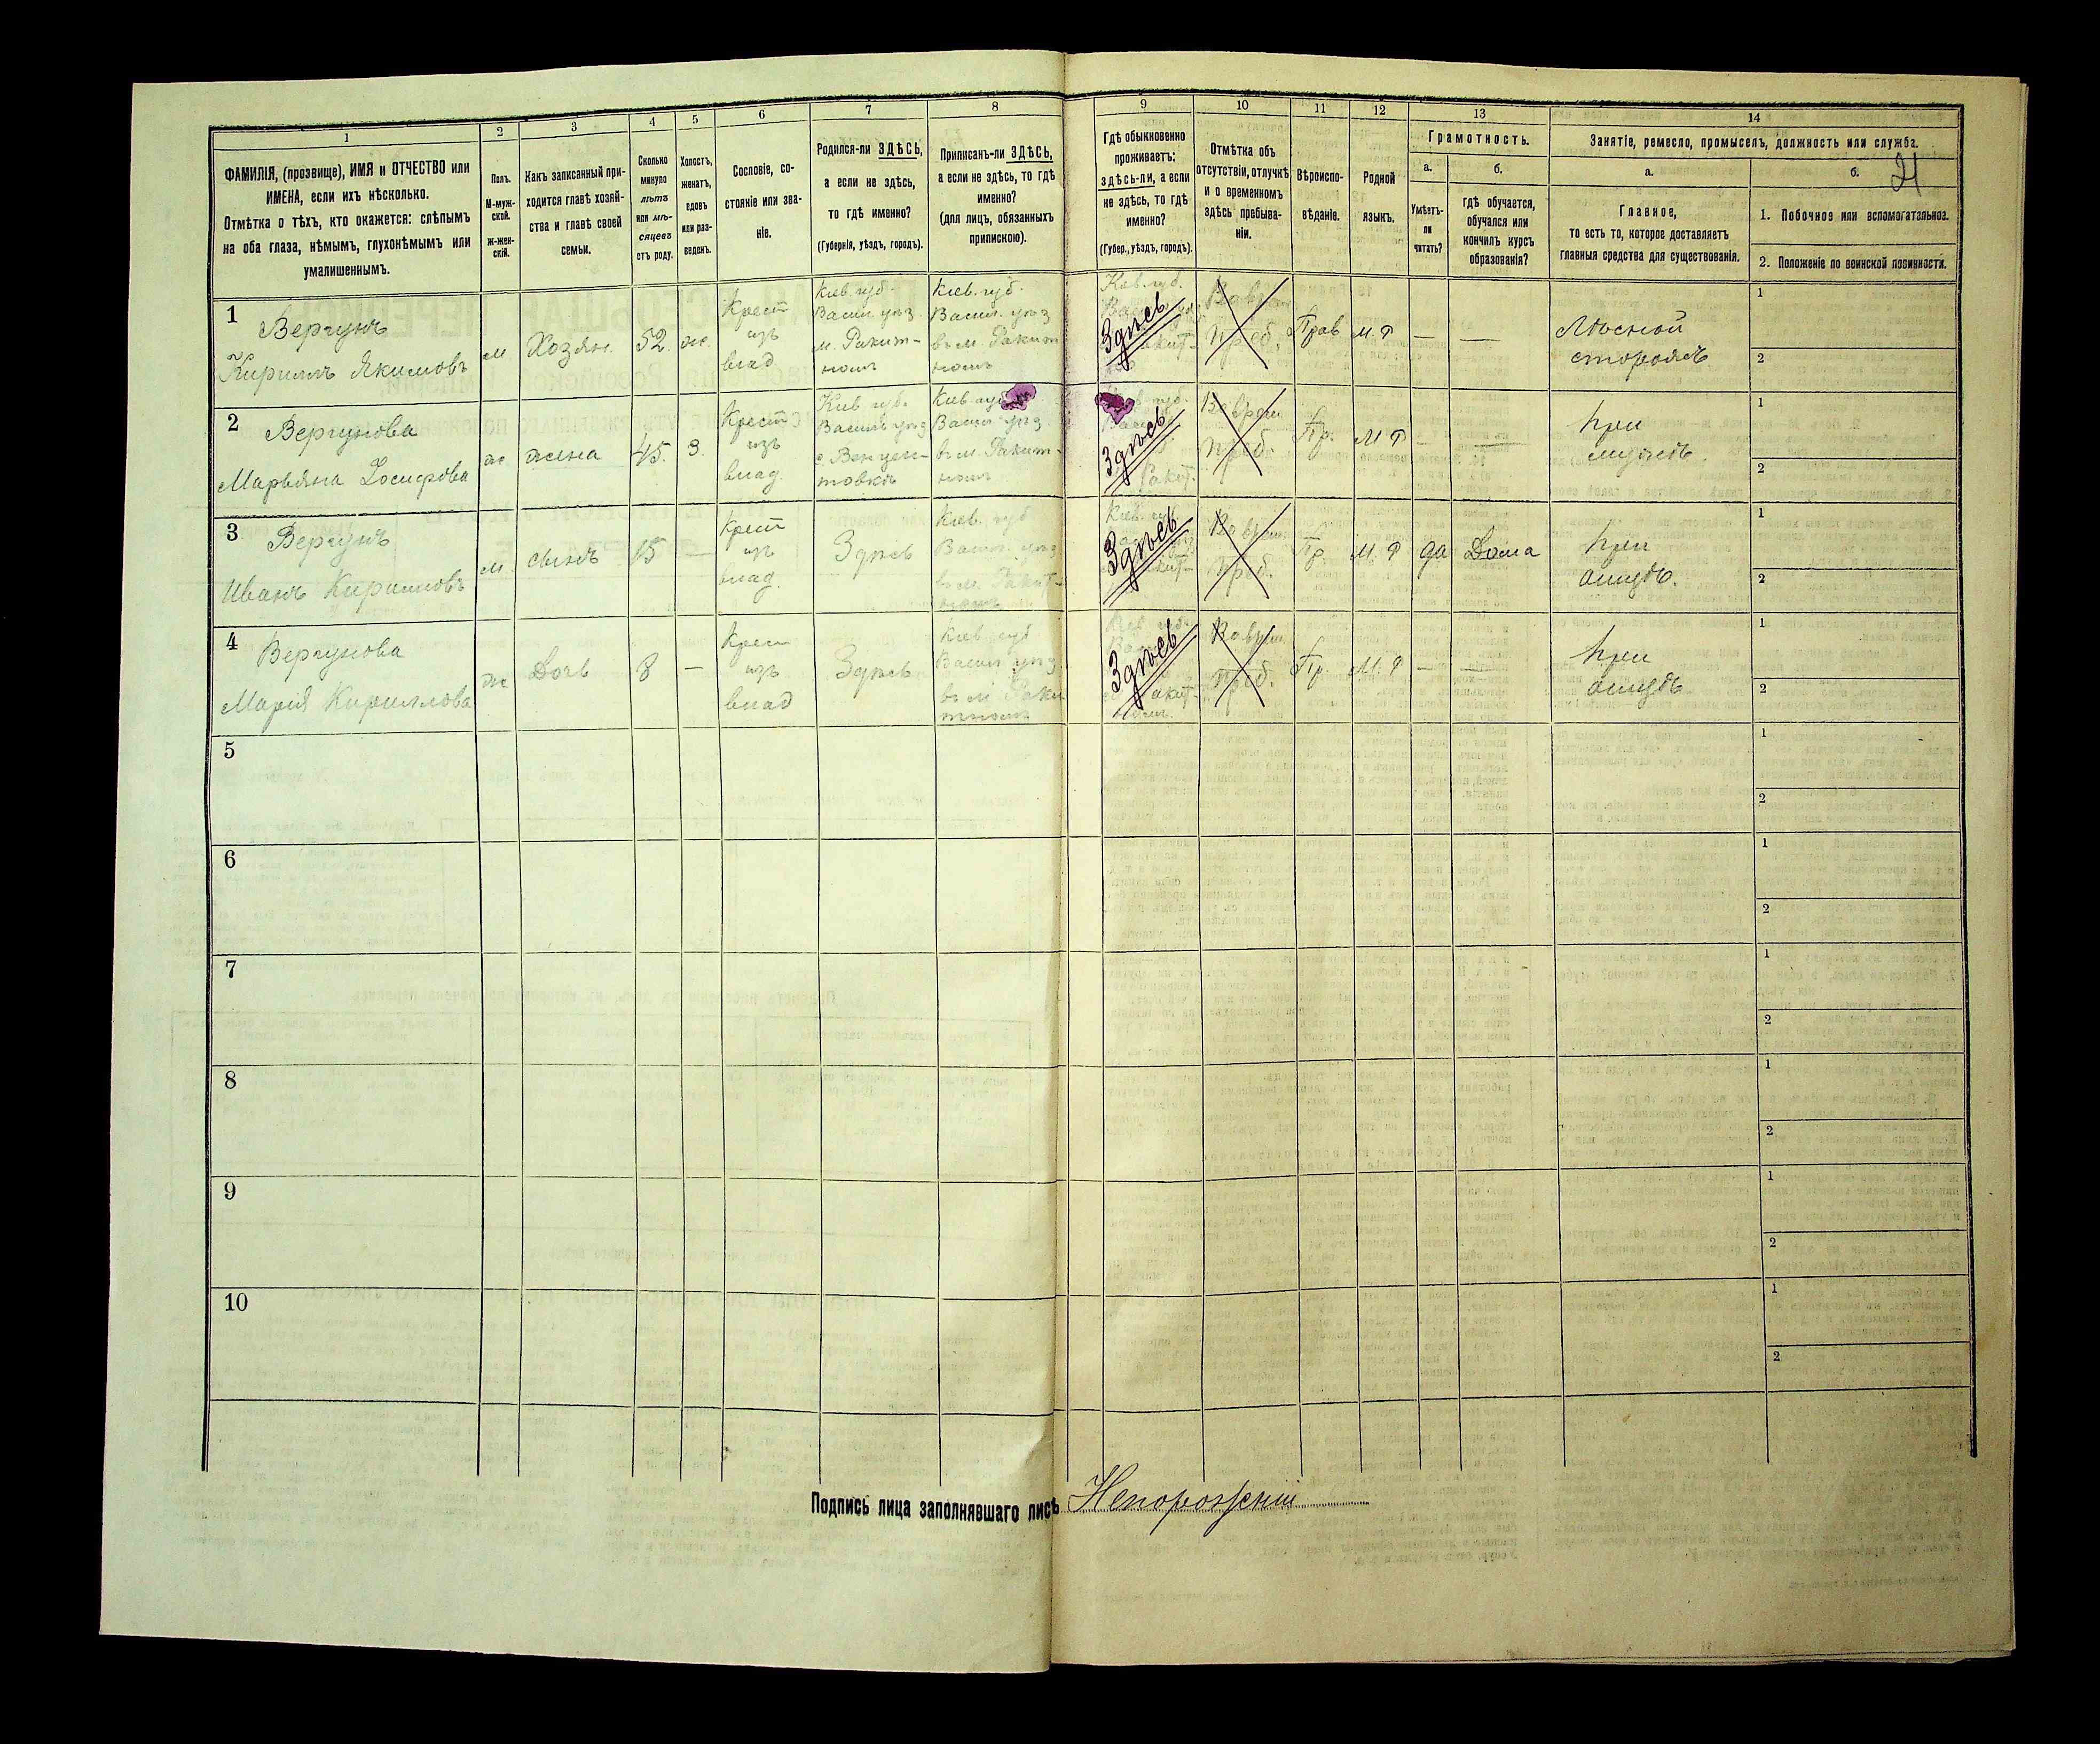 1
2
3
4
5
6
7
8
9
10
11
12
13
14
ФАМИЛІЯ, (прозвище), ИМЯ и ОТЧЕСТВО или
ИМЕНА, если ихъ нѣсколько.
Отмѣтка о тѣхъ, кто окажется: слѣпымъ
на оба глаза, нѣмымъ, глухонѣмымъ или
умалишеннымъ.
Полъ.
М-муж-
ской.
ж-жен-
скій.
Какъ записанный при-
ходится главѣ хозяй-
ства и главѣ своей
семьи.
Сколько
минуло
лѣтъ
или мѣ-
сяцевъ
отъ роду.
Холостъ,
женатъ,
вдовъ
или раз-
веденъ.
Сословіе, со-
стояніе или зва-
ніе.
Родился-ли ЗДѢСЬ,
а если не здѣсь,
то гдѣ именно?
(Губернія, уѣздъ, городъ).
Приписанъ-ли ЗДѢСЬ,
а если не здѣсь, то гдѣ
именно?
(для лицъ, обязанныхъ
припискою).
Гдѣ обыкновенно
проживаетъ:
здѣсь-ли, а если
не здѣсь, то гдѣ
именно?
(Губер., уѣздъ, городъ).
Отмѣтка объ
отсутствіи, отлучкѣ
и о временномъ
здѣсь пребыва-
ніи.
Вѣроиспо-
вѣданіе.
Родной
языкъ.
Грамотность.
а.
Умѣетъ-
ли
читать?
б.
гдѣ обучается,
обучался или
кончилъ курсъ
образованія?
Занятіе, ремесло, промыселъ, должность или служба.
а.
Главное,
то есть то, которое доставляетъ
главныя средства для существованія.
б.
21
1. Побочное или вспомогательное.
2. Положеніе по воинской повинности.
1
Вергунъ
Кириллъ Якимовъ
м
Хозяин.
52.
ж.
Крест
изъ
влад
Кіев. губ.
Васил. уѣз
м. Ракит-
номъ
Кіев. губ.
Васил. уѣз
въ м. Ракит
номъ
Кіев. губ.
Здѣсь
Во врем.
преб.
Прав
М. Р
—
—
Лѣсной
сторожъ
1
2
2
Вергунова
Марьяна Іосифова
ж.
жена
45.
З.
Крест
изъ
влад.
Кіев губ.
Васил уѣз
с. Винцен-
товкѣ
Кіев губ
Васил уѣз.
въ м. Ракит-
номъ
Здѣсь
Ракит.
Во врем.
преб.
Пр.
М Р
—
—
При
мужѣ.
1
2
3
Вергунъ
Иванъ Кирилловъ
м.
сынъ
15
—
Крест
изъ
влад.
Здѣсь
Кіев. губ
Васил. уѣз
въ м. Ракит-
номъ
Кіев. губ.
Здѣсь
Во врем.
преб.
Пр.
М. Р
да
Дома
При
отцѣ.
1
2
4
Вергунова
Марія Кириллова
ж
Дочь
8
—
Крест
изъ
влад
Здѣсь
Кіев губ
Васил уѣз.
въ м Раки
тномъ
Кіев губ.
Здѣсь
Во врем.
преб.
Пр.
М. Р
—
—
При
отцѣ
1
2
5
1
2
6
1
2
7
1
2
8
1
2
9
1
2
10
1
2
Подпись лица заполнявшаго листъ Непорожній